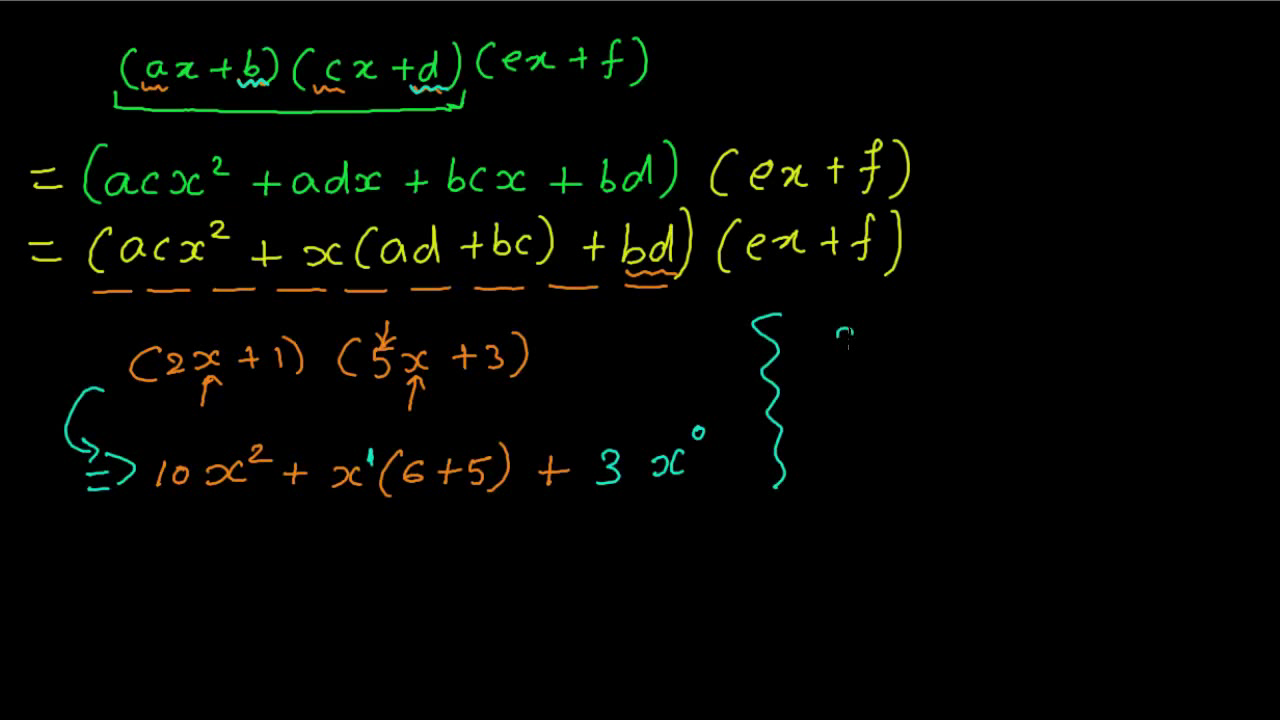 (ax + b)(cx + d)(ex + f)
= (acx² + adx + bcx + bd) (ex + f)
= (acx² + x(ad + bc) + bd) (ex + f)
(2x + 1) (5x + 3)
=> 10x² + x¹(6+5) + 3 x⁰